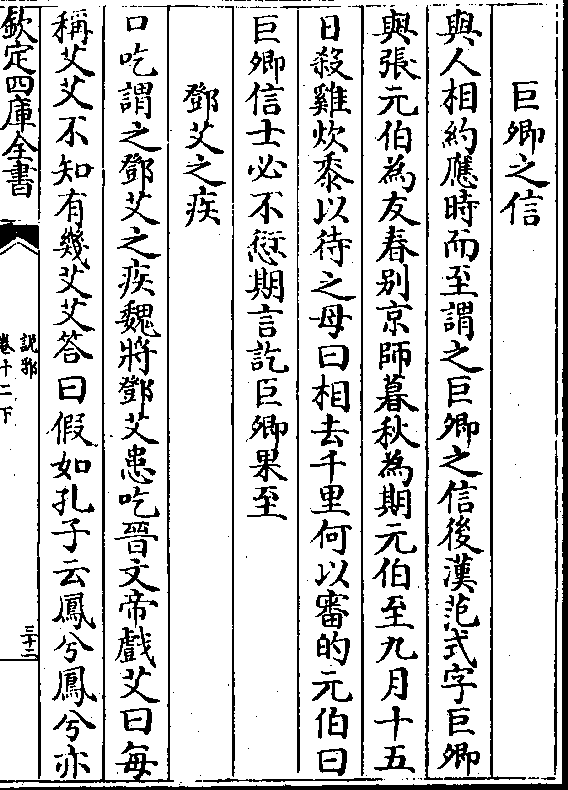 巨卿之信
與人相約應時而至謂之巨卿之信後漢范式字巨卿
與張元伯為友春别京師暮秋為期元伯至九月十五
日殺雞炊黍以待之母曰相去千里何以審的元伯曰
巨卿信士必不愆期言訖巨卿果至
鄧艾之疾
口吃謂之鄧艾之疾魏將鄧艾患吃晉文帝戲艾曰每
稱艾艾不知有幾艾艾答曰假如孔子云鳳兮鳳兮亦
欽定四庫全書
說郛
卷十二下
三十二